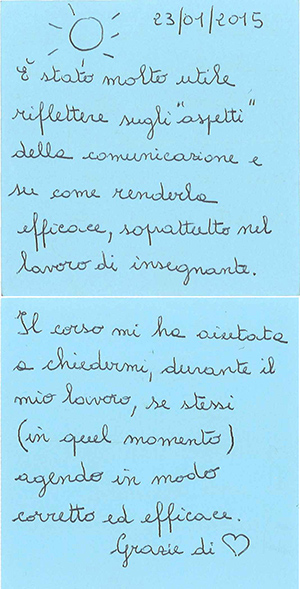 23/01/2015
È stato molto utile
riflettere sugli "aspetti"
della comunicazione e
su come renderla
efficace, soprattutto nel
lavoro di insegnante.
Il corso mi ha aiutata
a chiedermi, durante il
mio lavoro, se stessi
(in quel momento)
agendo in modo
corretto ed efficace.
Grazie di ♡